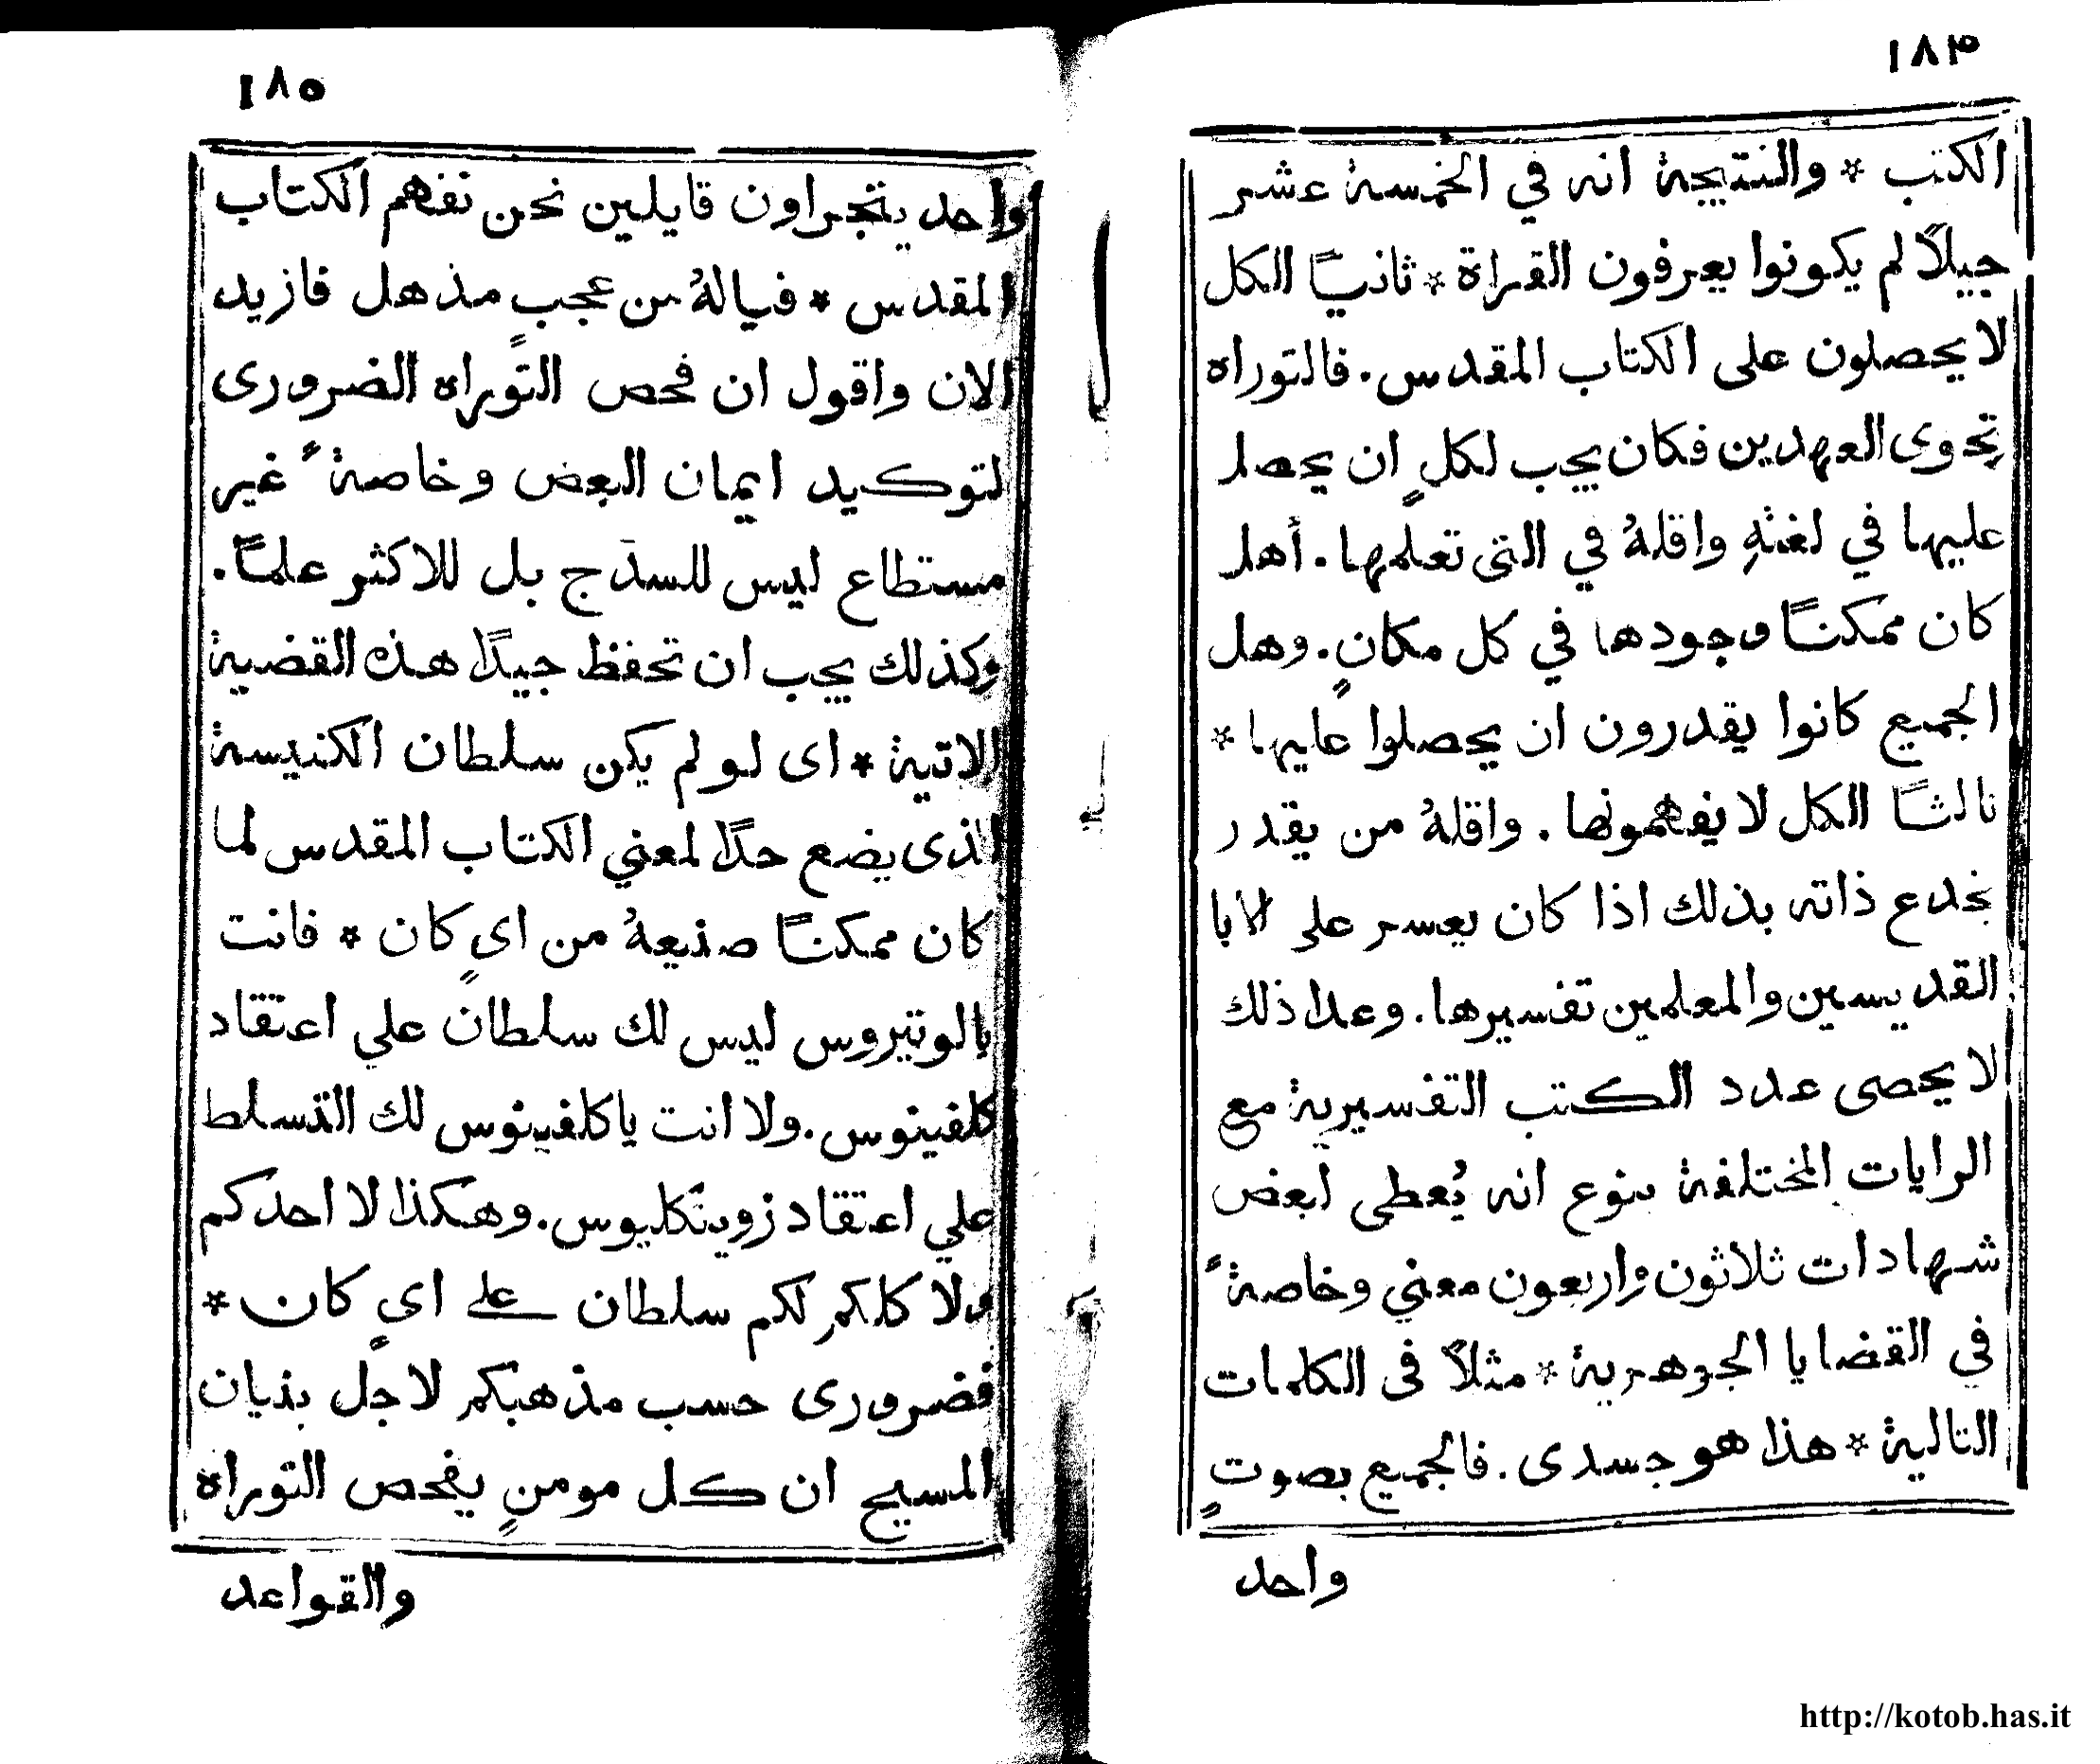 ١٨٤
الكتب * والنتيجة انه في الخمسة عشر
جيلًا لم يكونوا يعرفون القراة * ثانيًا الكل
لا يحصلون على الكتاب المقدس. فالتوراه
تحوى العهدين فكان يجب لكلٍ ان يحصل
عليها في لغتهِ واقلهُ في التى تعلمها. أهل
كان ممكنًا وجودها في كل مكانٍ. وهل
الجميع كانوا يقدرون ان يحصلوا عليها *
ثالثًا الكل لا يفهمونها. واقلهُ من يقدر
يخدع ذاته بذلك اذا كان يعسر على الابا
القديسين والمعلمين تفسيرها. وعدا ذلك
لا يحصى عدد الكتب التفسيرية مع
الرايات المختلفة بنوع انه يُعطى لبعض
شهادات ثلاثون واربعون معني وخاصةً
في القضايا الجوهرية * مثلاً فى الكلمات
التالية * هذا هو جسدى. فالجميع بصوتٍ
واحد
١٨٥
واحد يتجراون قايلين نحن نفهم الكتاب
المقدس * فيالهُ من عجبٍ مذهل فازيد
الان واقول ان فحص التوراه الضرورى
لتوكيد ايمان البعض وخاصةً غير
مستطاع ليس للسذج بل للاكثر علمًا.
وكذلك يجب ان تحفظ جيدًا هذه القضية
الاتية * اى لو لم يكن سلطان الكنيسة
الذى يضع حدًا لمعني الكتاب المقدس لما
كان ممكنًا صنيعهُ من ايٍ كان * فانت
يالوتيروس ليس لك سلطان علي اعتقاد
كلفينوس. ولا انت ياكلفينوس لك التسلط
علي اعتقاد زوينكليوس. وهكذا لا احدكم
ولا كلكم لكم سلطان علي ايٍ كان *
فضرورى حسب مذهبكم لاجل بنيان
المسيح ان كل مومنٍ يفحص التوراه
والقواعد
http://kotob.has.it